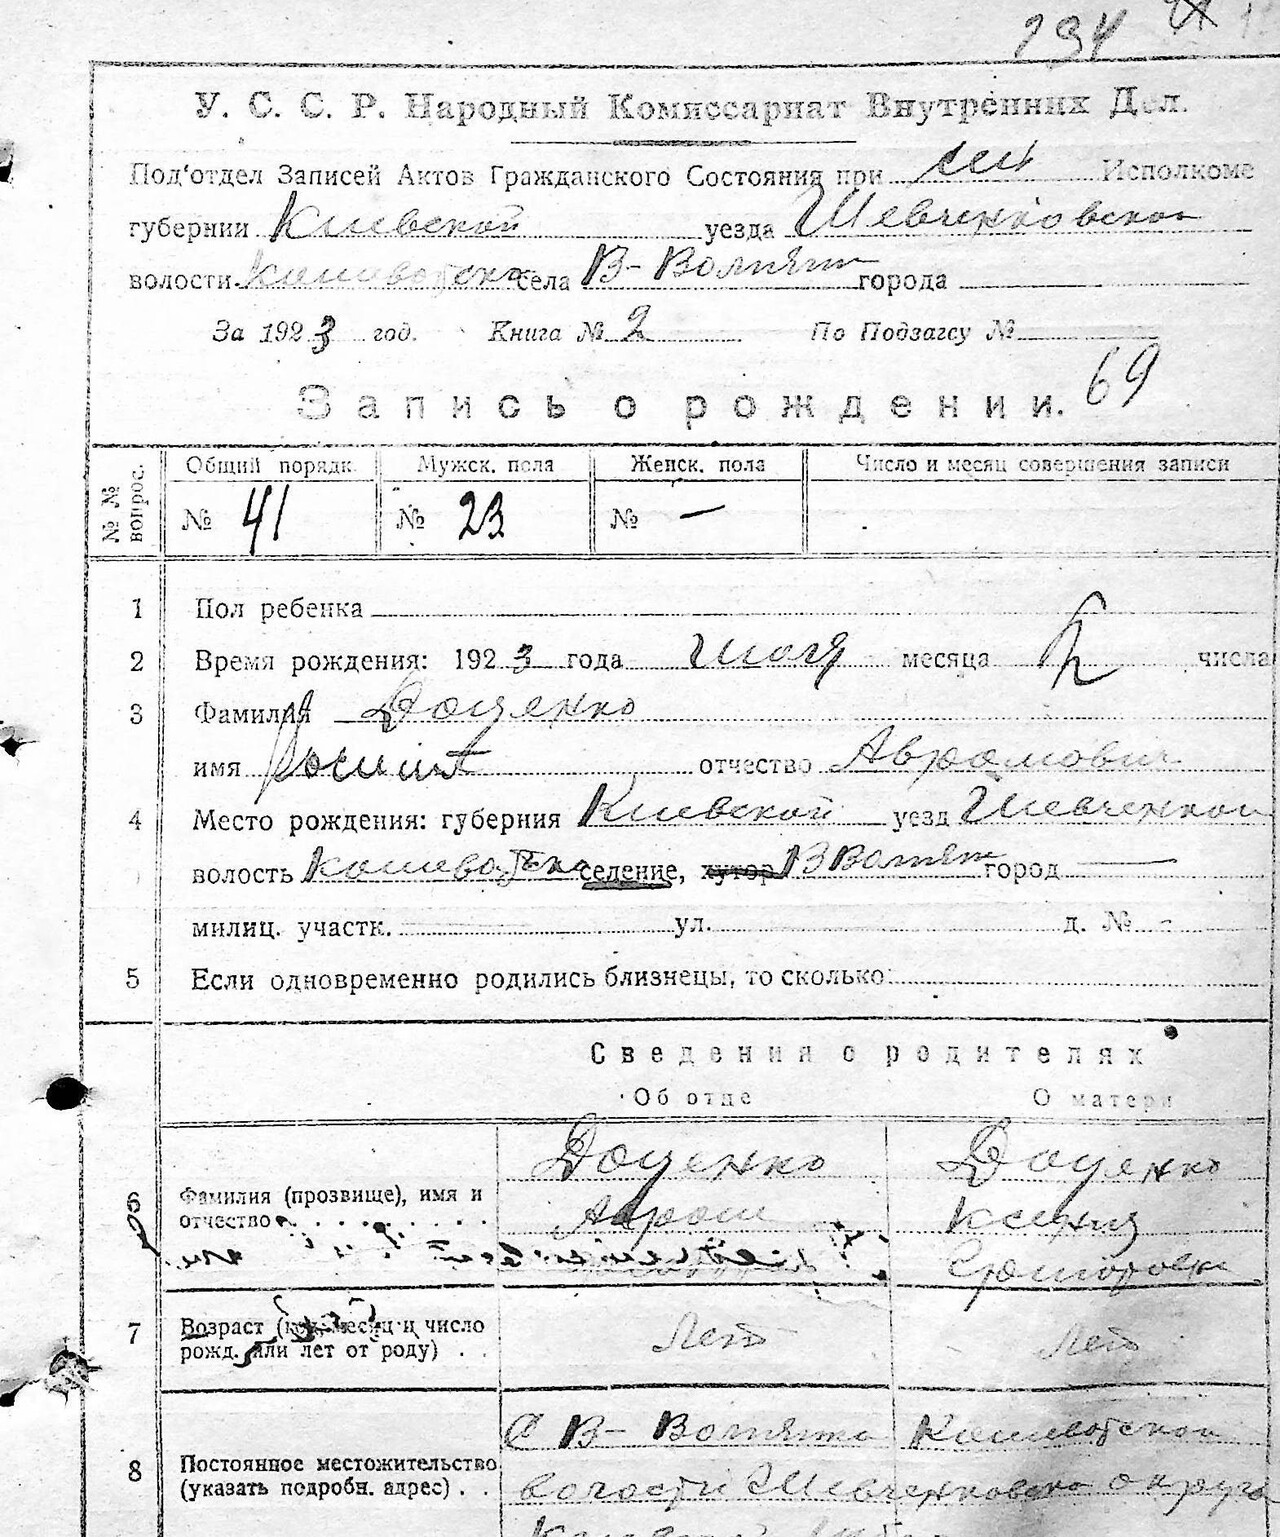 294
У. С. С. Р. Народный Комиссариат Внутренних Дел.
Под'отдел Записей Актов Гражданского Состояния при Исполкоме
губернии Киевской уезда Шевченковской
волости села В- города
За 1923 год. Книга № 2 По Подзагсу №
Запись о рождении. 69
№ № вопрос. Общий порядк. Мужск. пола Женск. пола Число и месяц совершения записи
№ 41 № 23 № —
1 Пол ребенка
2 Время рождения: 1923 года Июля месяца числа
3 Фамилия Доценко
имя отчество Аврамович
4 Место рождения: губерния Киевской уезд Шевченков
волость селение, хутор В город —
милиц. участк. ул. д. № -
5 Если одновременно родились близнецы, то сколько:
Сведения о родителях
Об отце О матери
6 Фамилия (прозвище), имя и отчество Доценко Доценко
Авром Ксения
7 Возраст (год, месяц и число рожд. или лет от роду) . . Лет Лет
8 Постоянное местожительство (указать подробн. адрес) . . С В-
волости Шевченковско округа